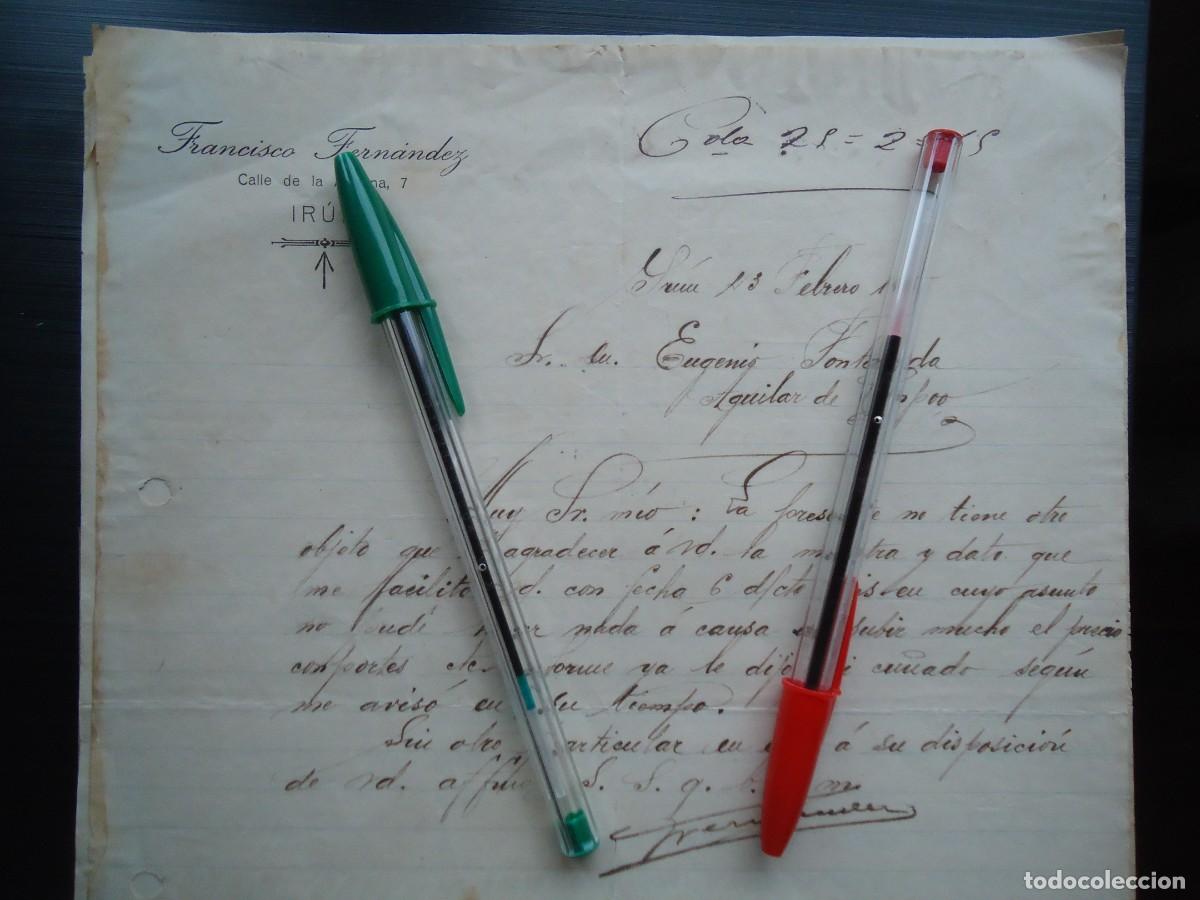 Francisco Fernández
Calle de la na, 7
IRÚ
Cola 25 = 2 =
Irún 23 Febrero 1
Sr. Eugenio Font da
Aguilar de poo
Muy Sr. mío : La prese e no tiene otro
objeto que agradecer á Vd. la m tra y dato que
me facilitó d. con fecha 6 en cuyo asunto
no pude er nada á causa subir mucho el precio
con portes orme ya le dij i cuñado según
me avisó en su tiempo.
Sin otro articular á su disposición
de Vd. affmo S. S. q. b. m
Fernandez
todocoleccion